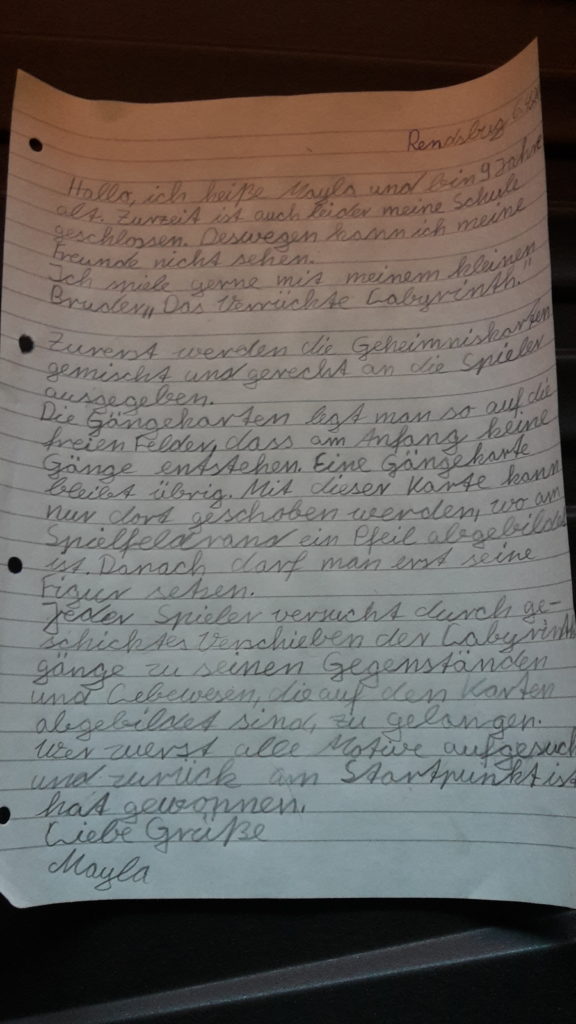 Rendsburg
Hallo, ich heiße Mayla und bin 9 Jahre
alt. Zurzeit ist auch leider meine Schule
geschlossen. Deswegen kann ich meine
Freunde nicht sehen.
Ich spiele gerne mit meinem kleinen
Bruder „Das Verrückte Labyrinth."
Zurerst werden die Geheimniskarten
gemischt und gerecht an die Spieler
ausgegeben.
Die Gängekarten legt man so auf die
freien Felder, dass am Anfang keine
Gänge entstehen. Eine Gängekarte
bleibt übrig. Mit dieser Karte kann
nur dort geschoben werden, wo am
Spielfeldrand ein Pfeil abgebildet
ist. Danach darf man erst seine
Figur setzen.
Jeder Spieler versucht durch ge-
schicktes Verschieben der Labyrinth
gänge zu seinen Gegenständen
und Lebewesen, die auf den Karten
abgebildet sind, zu gelangen.
Wer zuerst alle Motive aufgesuch
und zurück am Startpunkt ist
hat gewonnen.
Liebe Grüße
Mayla